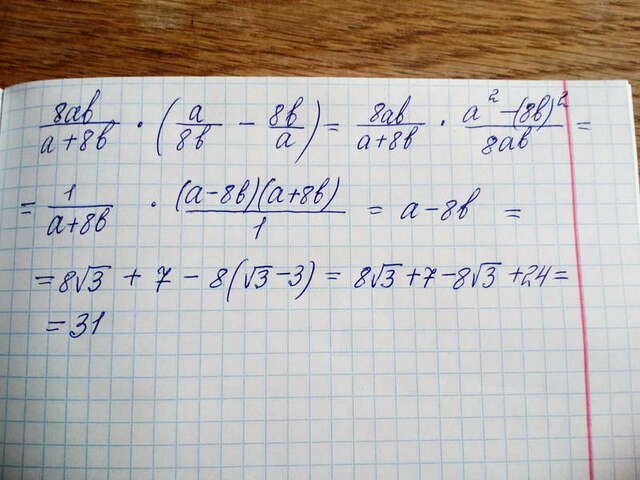 8ab/(a+8b) · (a/8b − 8b/a) = 8ab/(a+8b) · (a² − (8b)²)/8ab =
= 1/(a+8b) · (a−8b)(a+8b)/1 = a−8b =
= 8√3 + 7 − 8(√3−3) = 8√3+7−8√3+24=
= 31